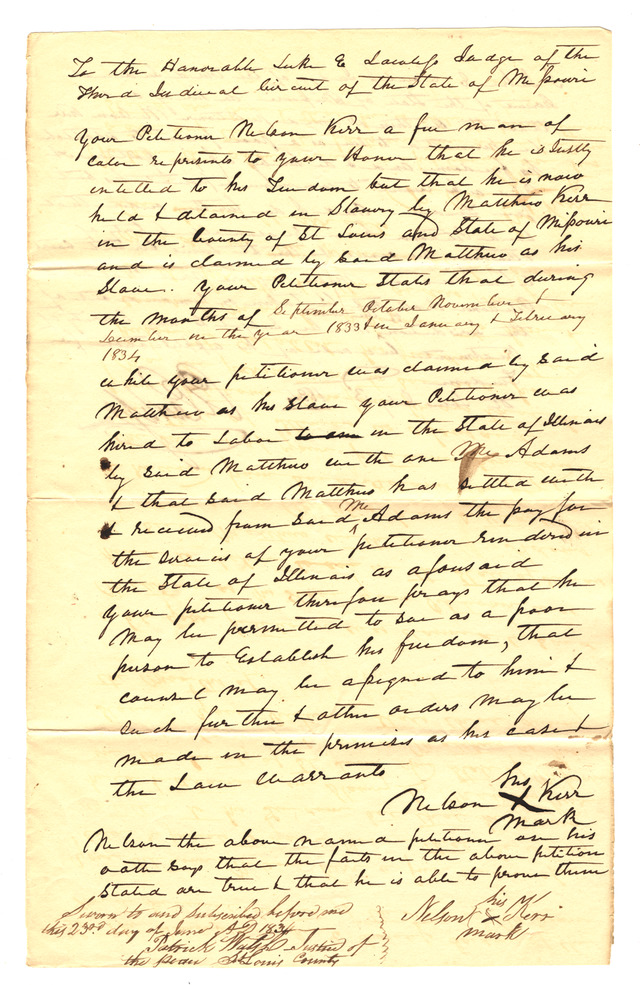 To the Honorable Luke E Lawless Judge of the
Third Judicial Circuit of the State of Missouri
Your Petitioner Nelson Kerr a free man of
Color represents to your Honor that he is Justly
intitled to his Freedom but that he is now
held & detained in Slavery by Matthew Kerr
in the County of St Louis and State of Missouri
and is claimed by said Matthew as his
Slave. Your Petitioner States that during
the months of September October November &
December in the year 1833 & in January & February
1834
while your petitioner was claimed by said
Matthew as his slave your Petitioner was
hired to Labor in the State of Illinois
by said Matthew with one Mr Adams
& that said Matthew has settled with
& received from said Mr Adams the pay for
the services of your petitioner rendered in
the State of Illinois as aforesaid
Your petitioner therefore prays that he
may be permitted to sue as a poor
person to Establish his freedom, that
counsel may be assigned to him &
such further & other orders may be
made in the premises as his case &
the Law warrants
his
Nelson X Kerr
mark
Nelson the above named petitioner on his
oath says that the facts in the above petition
stated are true & that he is able to prove them
Sworn to and subscribed before me
this 23rd day of June AD 1834
Patrick Walsh Justice of
the peace St Louis County
his
Nelson X Kerr
mark